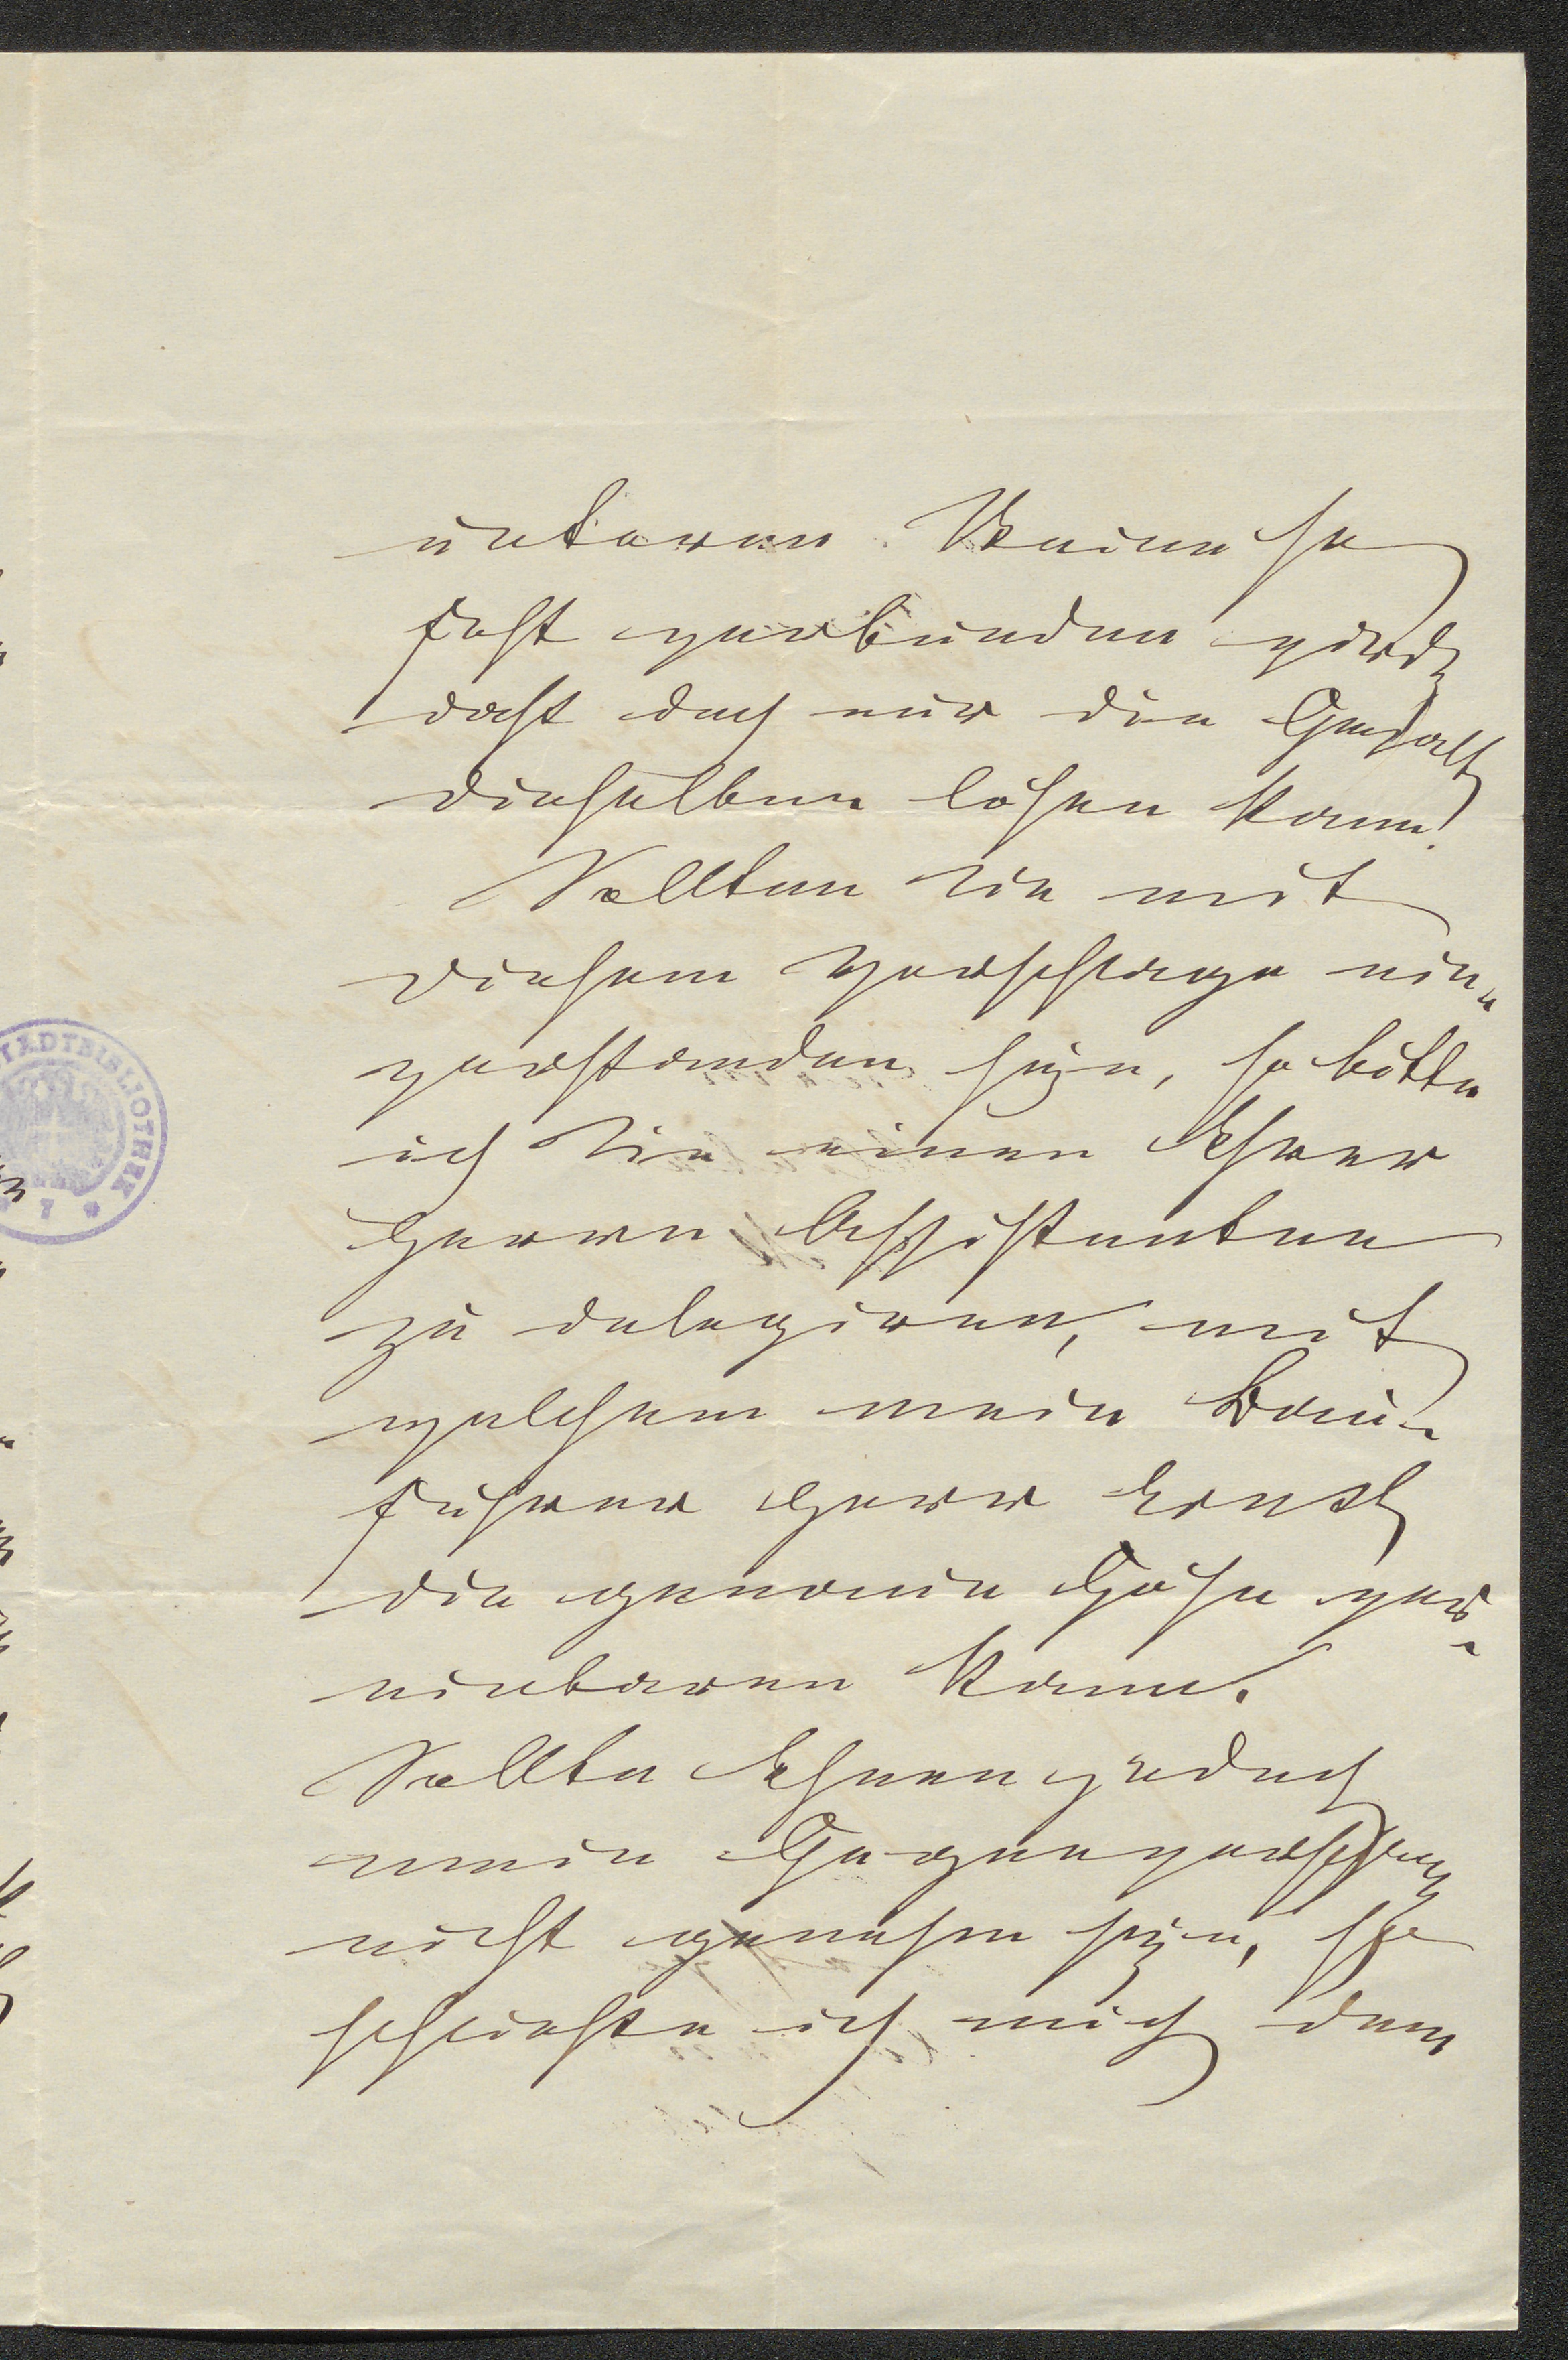 unteren Steine so
fest verbunden wird,
daß doch nur die Gewalt
dieselben lösen kann!
Sollten Sie mit
diesem Vorschlage ein„
verstanden sein, so bitte
ich Sie einen Ihrer
Herren Assistenten
zu delegiren, mit
welchem mein Bau-
führer Herr Ernst
die genaue Höhe ver„
einbaren kann.
Sollte Ihnen jedoch
mein Gegenvorschlag
nicht genehm sein, so
schließe ich mich dem
STADTBIBLIOTHEK